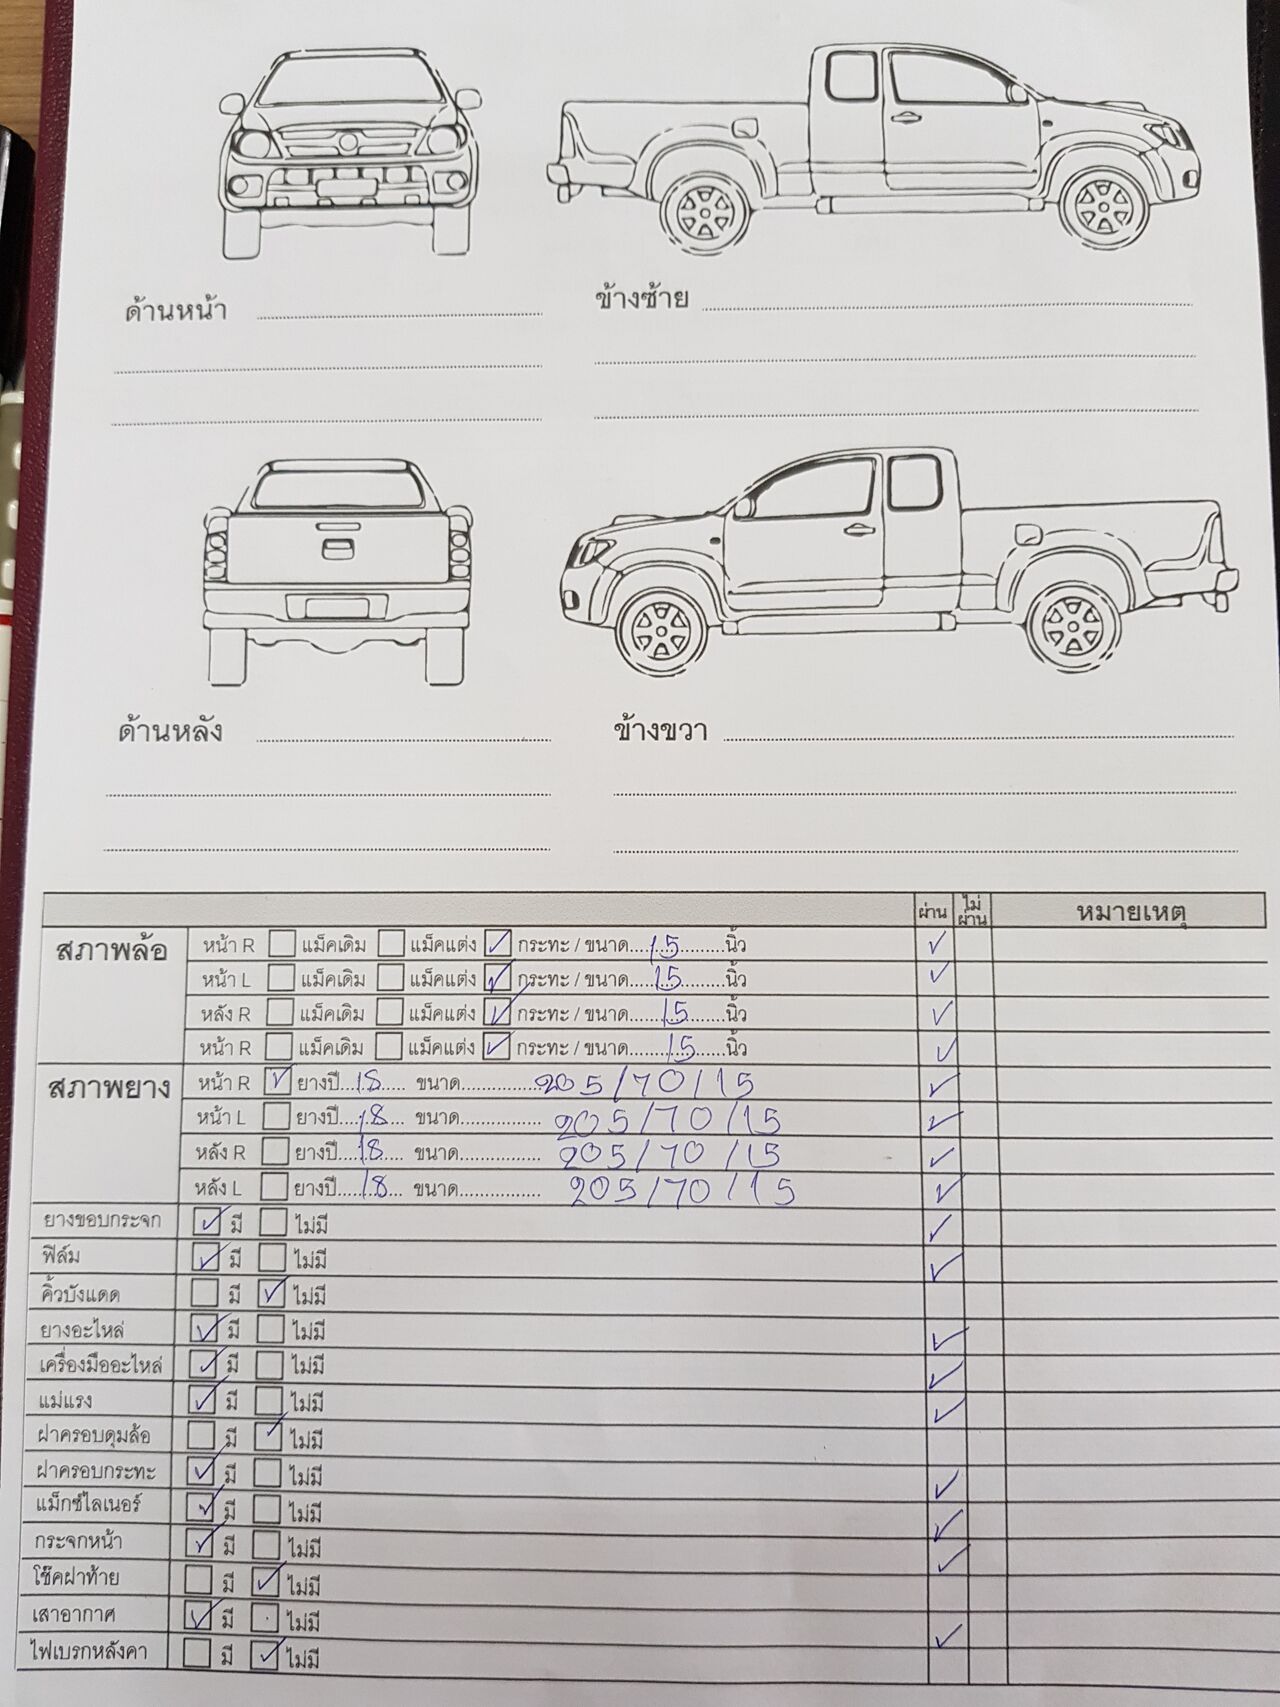 ด้านหน้า ข้างซ้าย
ด้านหลัง ข้างขวา
ผ่าน ไม่ผ่าน หมายเหตุ
สภาพล้อ หน้า R แม็คเดิม แม็คแต่ง ✓ กระทะ / ขนาด....15....นิ้ว ✓
หน้า L แม็คเดิม แม็คแต่ง ✓ กระทะ / ขนาด....15....นิ้ว ✓
หลัง R แม็คเดิม แม็คแต่ง ✓ กระทะ / ขนาด....15....นิ้ว ✓
หน้า R แม็คเดิม แม็คแต่ง ✓ กระทะ / ขนาด....15....นิ้ว ✓
สภาพยาง หน้า R ✓ ยางปี....18.... ขนาด.... 205/70/15 ✓
หน้า L ยางปี....18.... ขนาด.... 205/70/15 ✓
หลัง R ยางปี....18.... ขนาด.... 205/70/15 ✓
หลัง L ยางปี....18.... ขนาด.... 205/70/15 ✓
ยางขอบกระจก ✓ มี ไม่มี ✓
ฟิล์ม ✓ มี ไม่มี ✓
คิ้วบังแดด มี ✓ ไม่มี
ยางอะไหล่ ✓ มี ไม่มี ✓
เครื่องมืออะไหล่ ✓ มี ไม่มี ✓
แม่แรง ✓ มี ไม่มี ✓
ฝาครอบดุมล้อ มี ✓ ไม่มี
ฝาครอบกระทะ ✓ มี ไม่มี ✓
แม็กซ์ไลเนอร์ ✓ มี ไม่มี ✓
กระจกหน้า ✓ มี ไม่มี ✓
โช๊คฝาท้าย มี ✓ ไม่มี
เสาอากาศ ✓ มี ไม่มี ✓
ไฟเบรกหลังคา มี ✓ ไม่มี